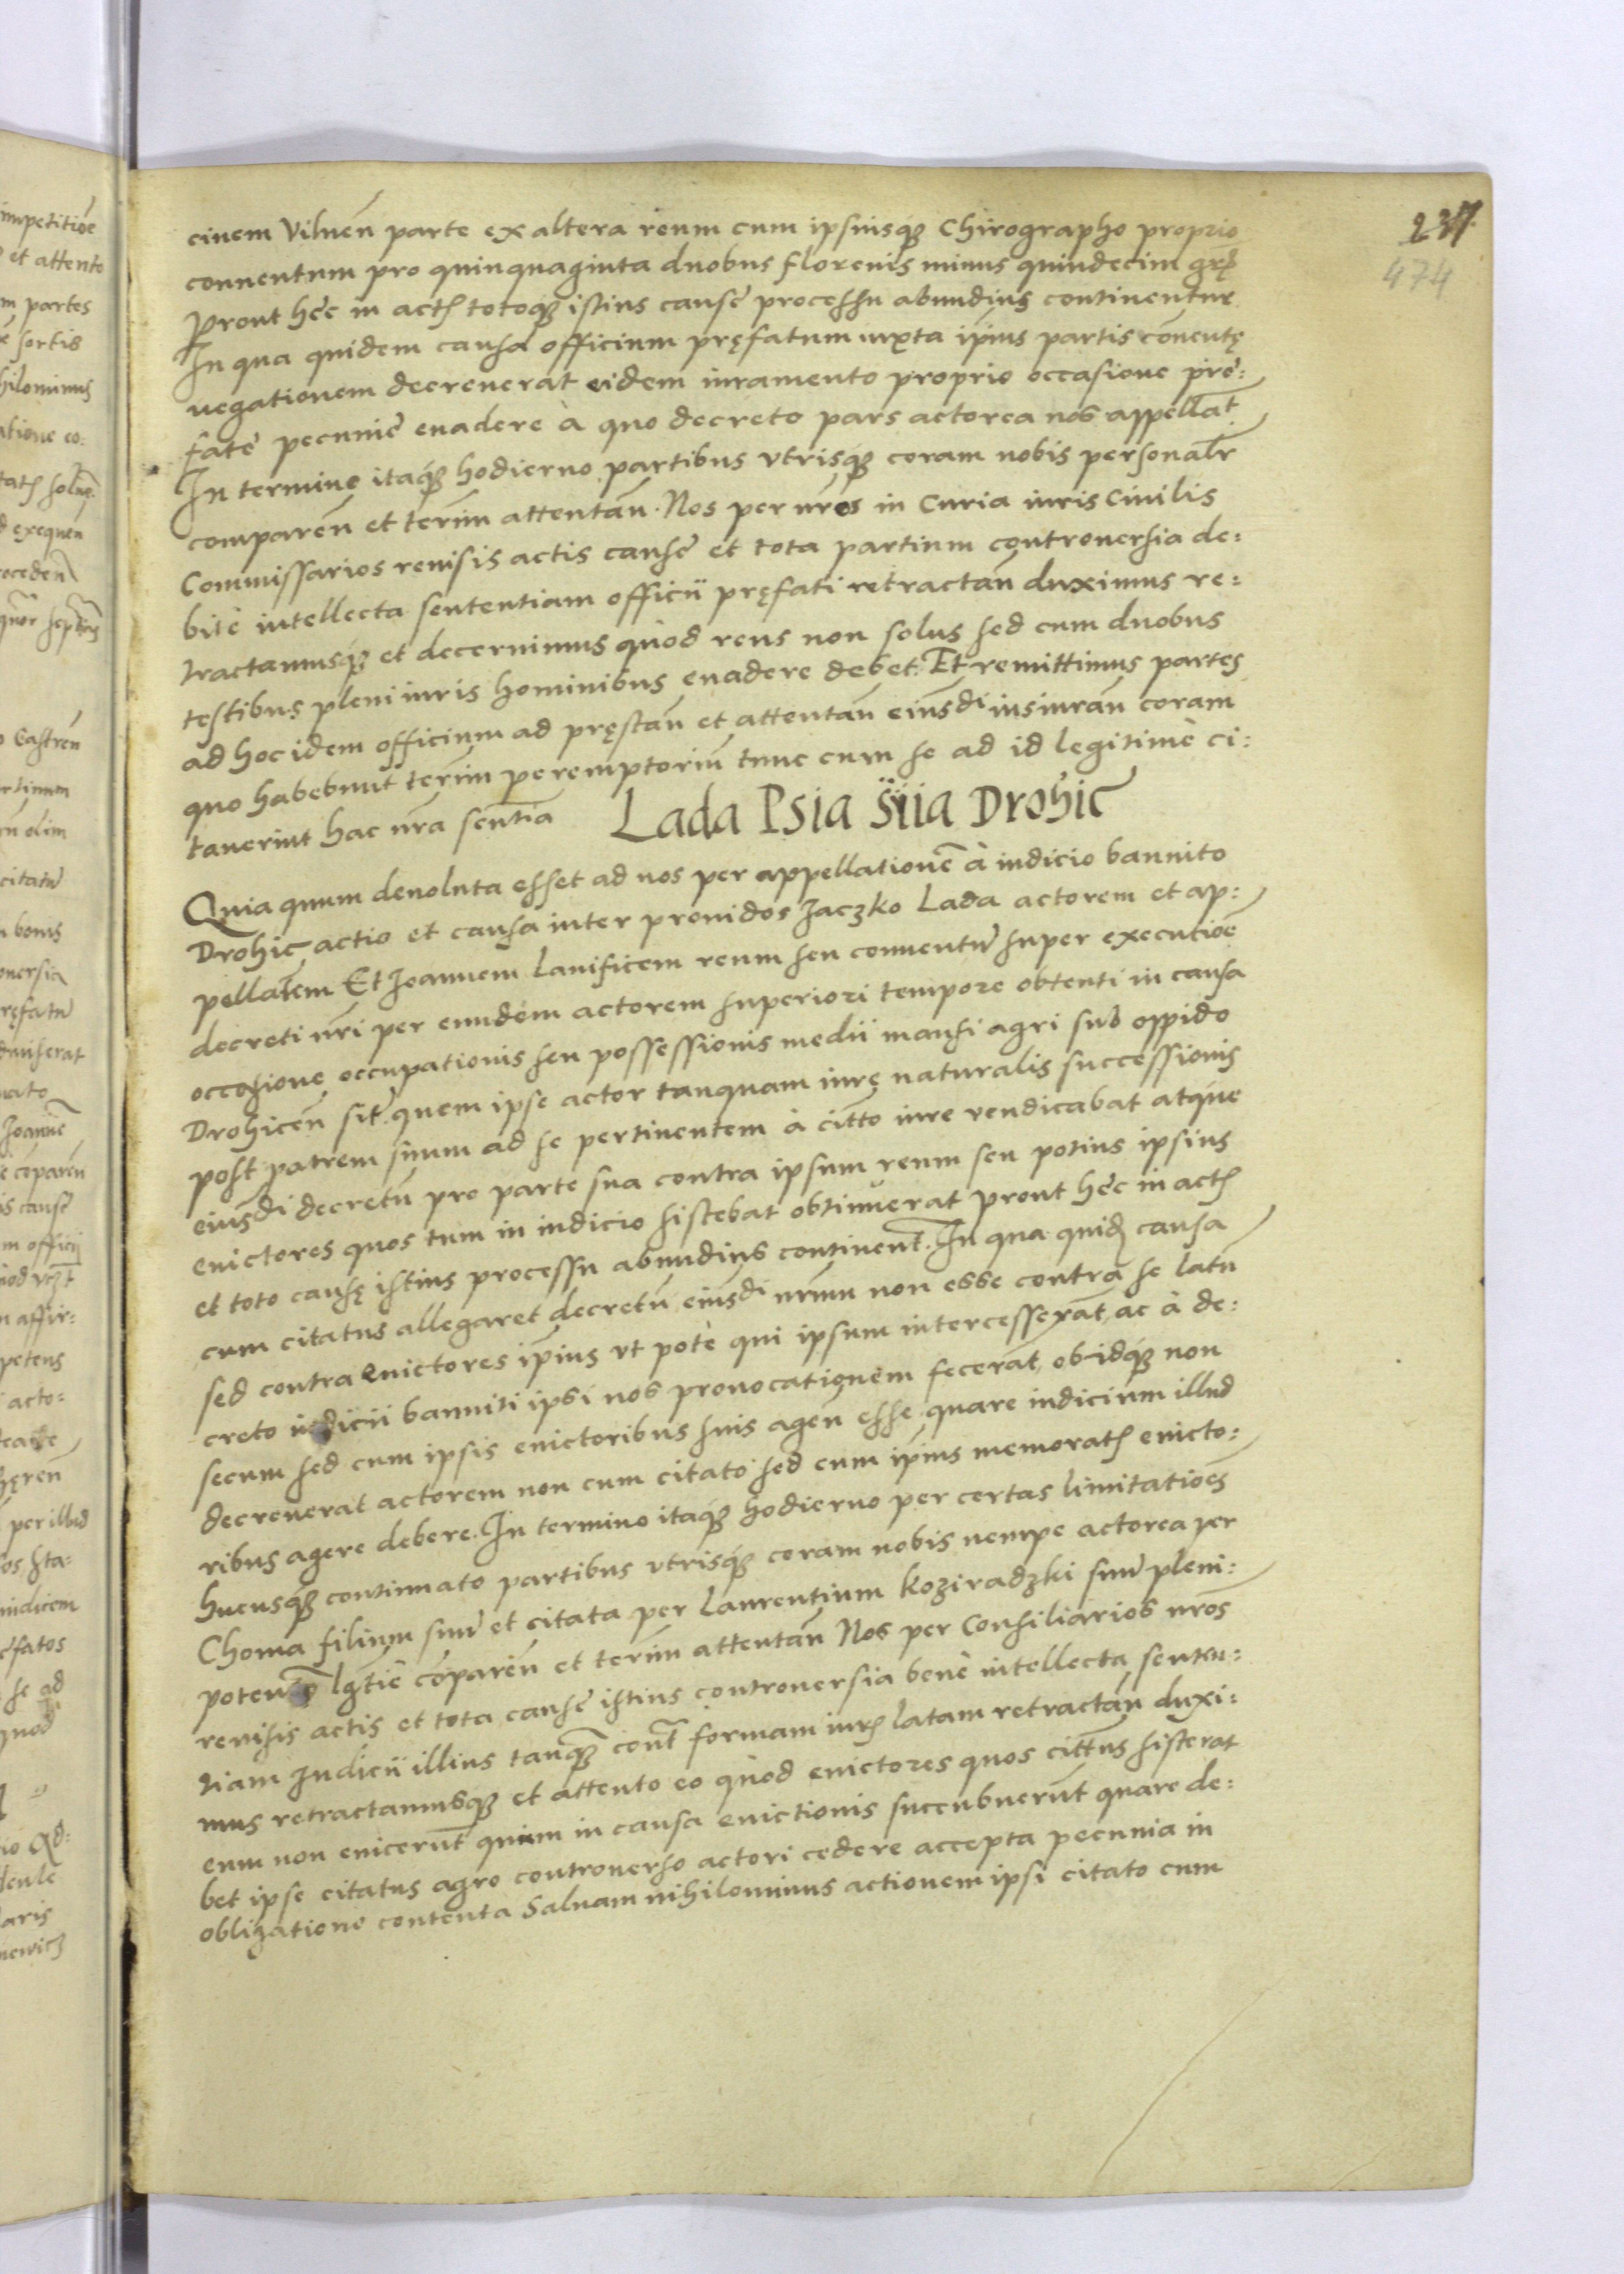 237.
474
ciuem Vilnen̄ parte ex altera reum cum ipsuisq́ꝫ Chirographo proprio
conuentum pro quinquaginta duobus florenis minus quindecim grę̄
Prout hęc in actꝭ totoq́ꝫ istius causę processu abundius continentur
In qua quidem causa officium pręfatum iuxta ip̄ius partis cōuentę
negationem decreuerat eidem iuramento proprio occasione prę:
fatę pecunię euadere à quo decreto pars actorea nos appellat̄.
In termino itaq́ꝫ hodierno partibus vtrisq́ꝫ coram nobis personalr̄
comparen̄ et term̄ attentan̄. Nos per nr̄os in Curia iuris Ciuilis
Commissarios reuisis actis causę et tota partium controuersia de:
bitè intellecta sententiam officii pręfati retractan̄ duximus re:
tractamusq́ꝫ et decernimus quòd reus non solus sed cum duobus
testibus pleni iuris hominibus euadere debet. Et remittimus partes
ad hoc idem officium ad pręstan̄ et attentan̄ eiusdi iusiuran̄ coram
quo habebunt term̄ peremptoriū tunc cum se ad id legitimè ci:
tauerint hac nr̄a sentn̄tia
Lada Psia Sn̄ia Drohic
Quia quum deuoluta esset ad nos per appellationē à iudicio bannito
Drohic̄ actio et causa inter prouidos Jaczko Lada actorem et ap:
pellatem Et Joannem lanificem reum seu conuentū super executiōe
decreti nr̄i per eundem actorem superiori tempore obtenti in causa
occasione occupationis seu possessionis medii mansi agri sub oppido
Drohicen̄ sit̄ quem ipse actor tanquam iurę naturalis successionis
post patrem suum ad se pertinentem à citt̄o iure vendicabat atque
eiusdi decretū pro parte sua contra ipsum reum seu potius ipsius
euictores quos tum in iudicio sistebat obtinuerat prout hęc in actꝭ
et toto causę istius processu abundius continent̄. In qua quidꝭ causa
cum citatus allegaret decretū eiusdi nr̄um non esse contra se latū
sed contra euictores ip̄ius vt pote qui ipsum intercesserāt, ac à de:
creto iudicii banniti ipsi nos prouocationem fecerāt, ob idq́ꝫ non
secum sed cum ipsis euictoribus suis agen̄ esse, quare iudicium illud
decreuerat actorem non cum citato sed cum ip̄ius memoratꝭ euicto:
ribus agere debere. In termino itaq́ꝫ hodierno per certas limitatiōes
hucusq́ꝫ continuato partibus vtrisq́ꝫ coram nobis nempe actorea per
Choma filium suū et citata per Laurentium Koziradzki suū pleni:
poten lgt̄ie cōparen̄ et term̄ attentan̄ Nos per Consiliarios nr̄os
reuisis actis et tota causę istius controuersia benè intellecta senten:
tiam Iudicii illius tanq̄ꝫ cont̄ formam iurꝭ latam retractan̄ duxi:
mus retractamusq́ꝫ et attento eo quòd euictores quos citt̄us sisterat
eum non euicerūt quinim in causa euictionis succubuerūt quare de:
bet ipse citatus agro controuerso actori cedere accepta pecunia in
obligatione contenta Saluam nihilominus actionem ipsi citato cum